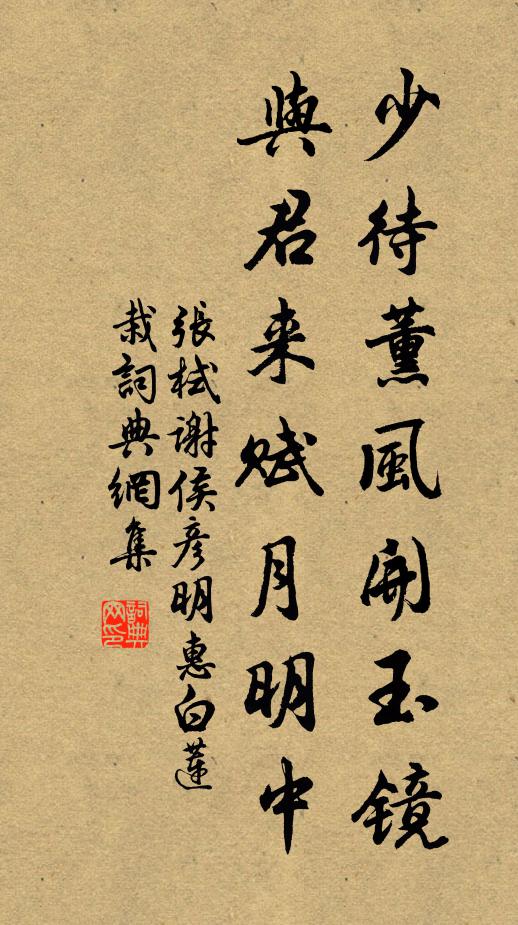 少待薰風開玉鏡
與君来賦月明中
張栻謝侯彦明惠白蓮
栽詞典網集
詞典网印